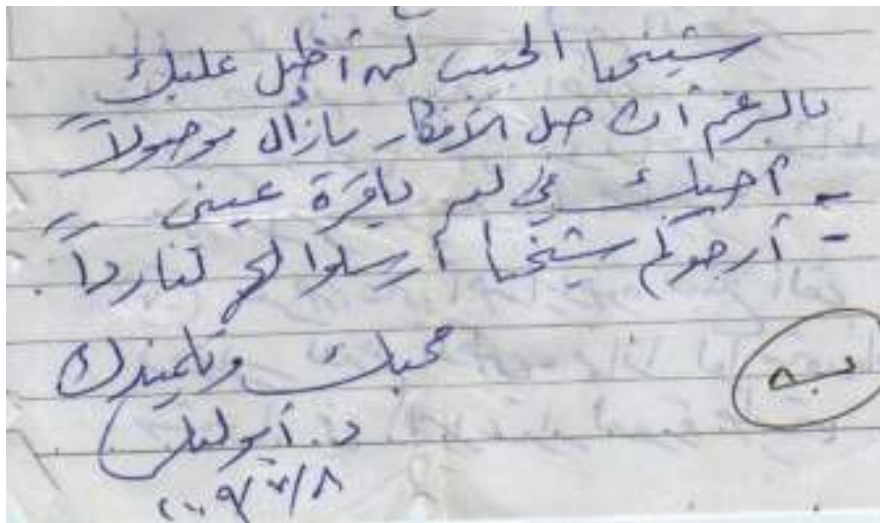 شيخنا الحبيب لن أطيل عليك
بالرغم أن حبل الأفكار مازال موصولاً
أحبك في الله ياقرة عيني
= أرجوكم شيخنا أرسلوا لنا رداً
محبك وتلميذك
د. أبو ليلى